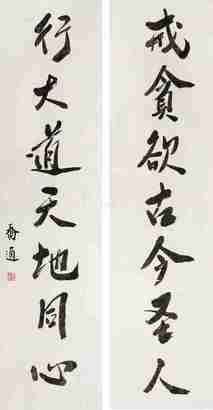 戒貪欲古今圣人
行大道天地同心
喬通